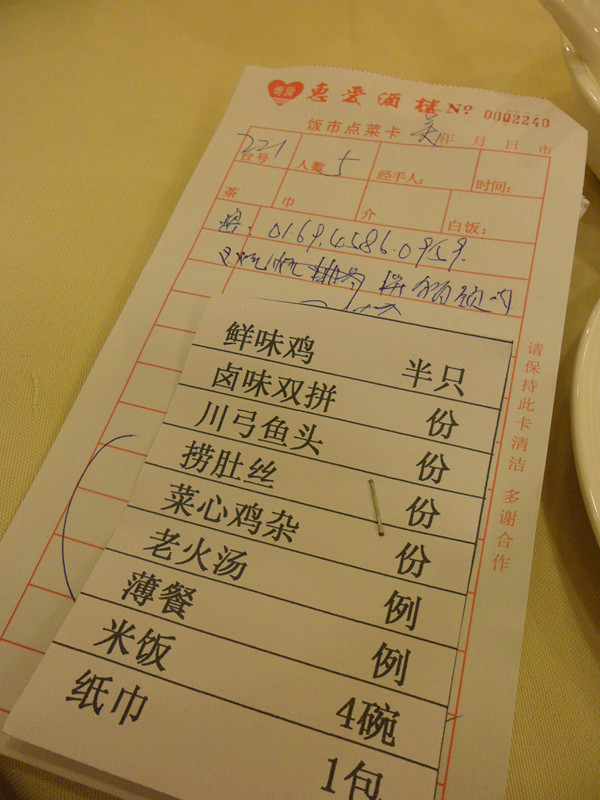 惠爱酒楼 Nº 0002240
饭市点菜卡 年 月 日 市
台号 221 人数 5 经手人: 时间:
茶 巾 介 白饭:
0169.4586.0959.
鲜味鸡 半只
卤味双拼 份
川弓鱼头 份
捞肚丝 份
菜心鸡杂 份
老火汤 例
薄餐 例
米饭 4碗
纸巾 1包
请保持此卡清洁 多谢合作